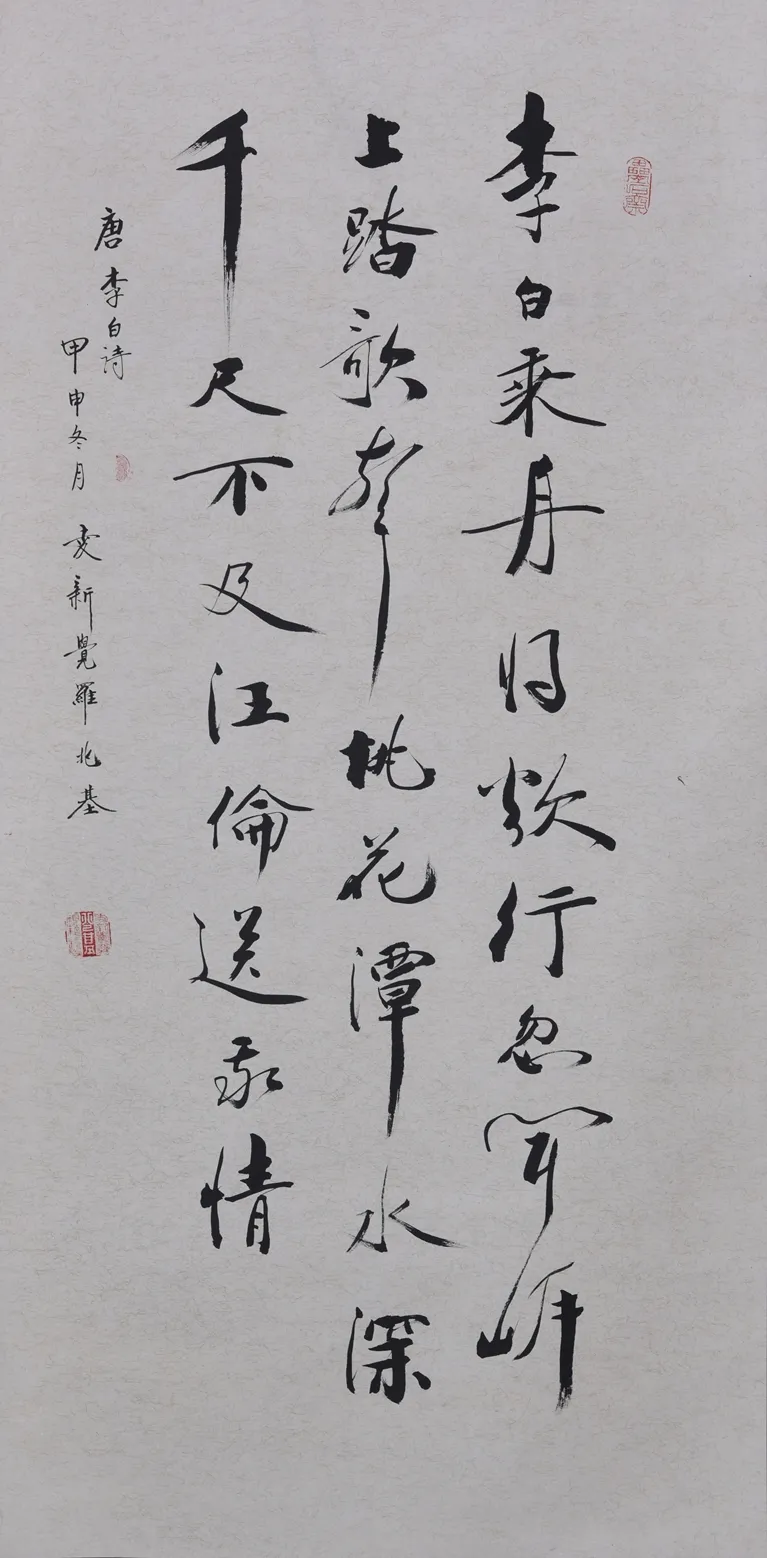 李白乘舟将欲行忽闻岸
上踏歌声桃花潭水深
千尺不及汪伦送我情
唐李白诗
甲申冬月 爱新觉罗兆基